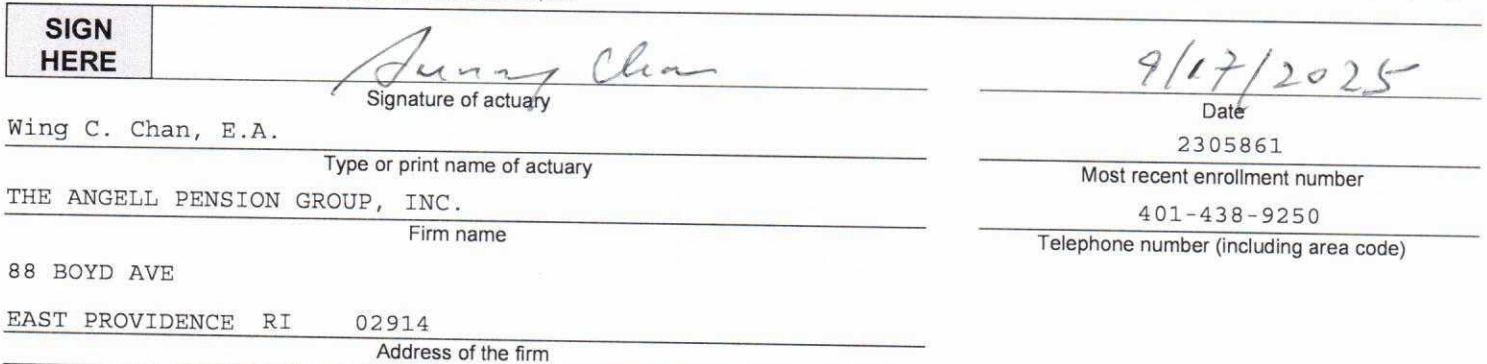 SIGN
HERE
Sunny Chan
9/17/2025
Signature of actuary
Date
Wing C. Chan, E.A.
2305861
Type or print name of actuary
Most recent enrollment number
THE ANGELL PENSION GROUP, INC.
401-438-9250
Firm name
Telephone number (including area code)
88 BOYD AVE
EAST PROVIDENCE RI 02914
Address of the firm